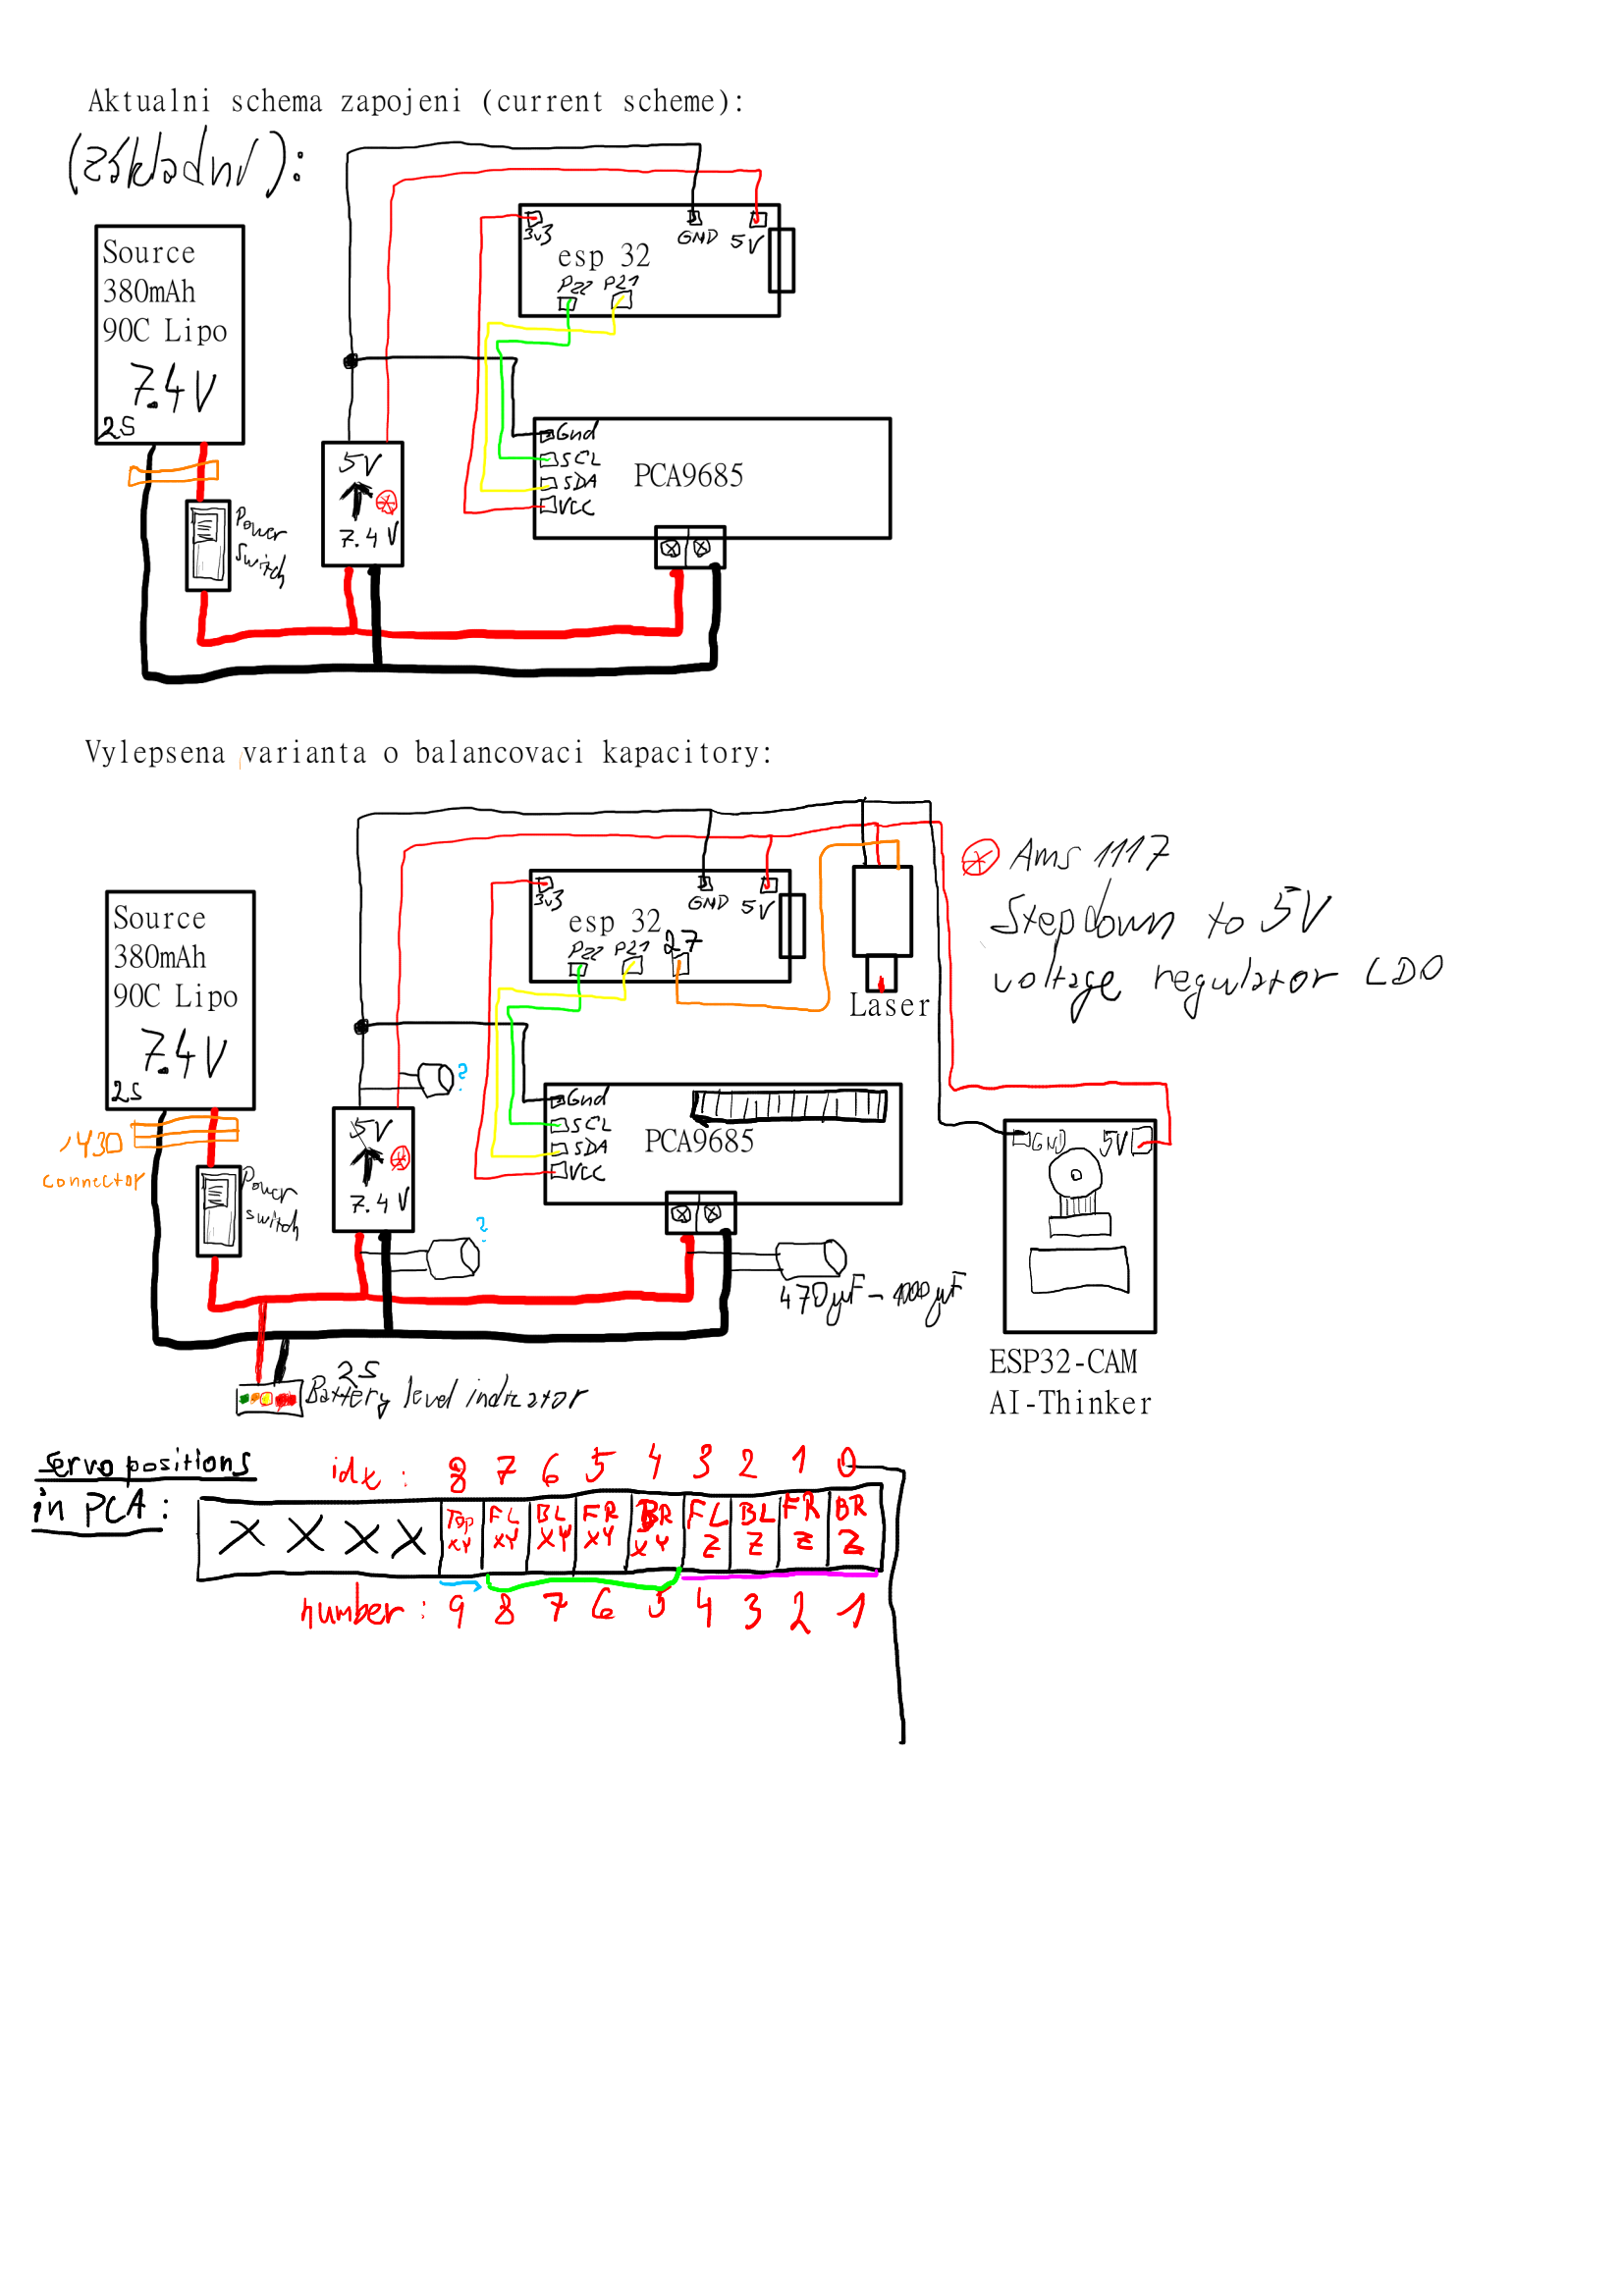 Aktualni schema zapojeni (current scheme):
(základní):
Source
380mAh
90C Lipo
7.4V
2S
Power
Switch
5V
7.4V
3v3
GND
5V
esp 32
P22 P21
Gnd
SCL
SDA
VCC
PCA9685
Vylepsena varianta o balancovaci kapacitory:
Source
380mAh
90C Lipo
7.4V
2S
connector
Power
switch
5V
7.4V
?
?
3v3
GND
5V
esp 32
P22 P21 27
Laser
Ams 1117
Stepdown to 5V
voltage regulator LDO
Gnd
SCL
SDA
VCC
PCA9685
470µF-1000µF
GND 5V
ESP32-CAM
AI-Thinker
2S
Battery level indicator
servo positions
in PCA:
idx: 8 7 6 5 4 3 2 1 0
X X X X Top FL BL FR BR FL BL FR BR
XY XY XY XY XY Z Z Z Z
number: 9 8 7 6 5 4 3 2 1